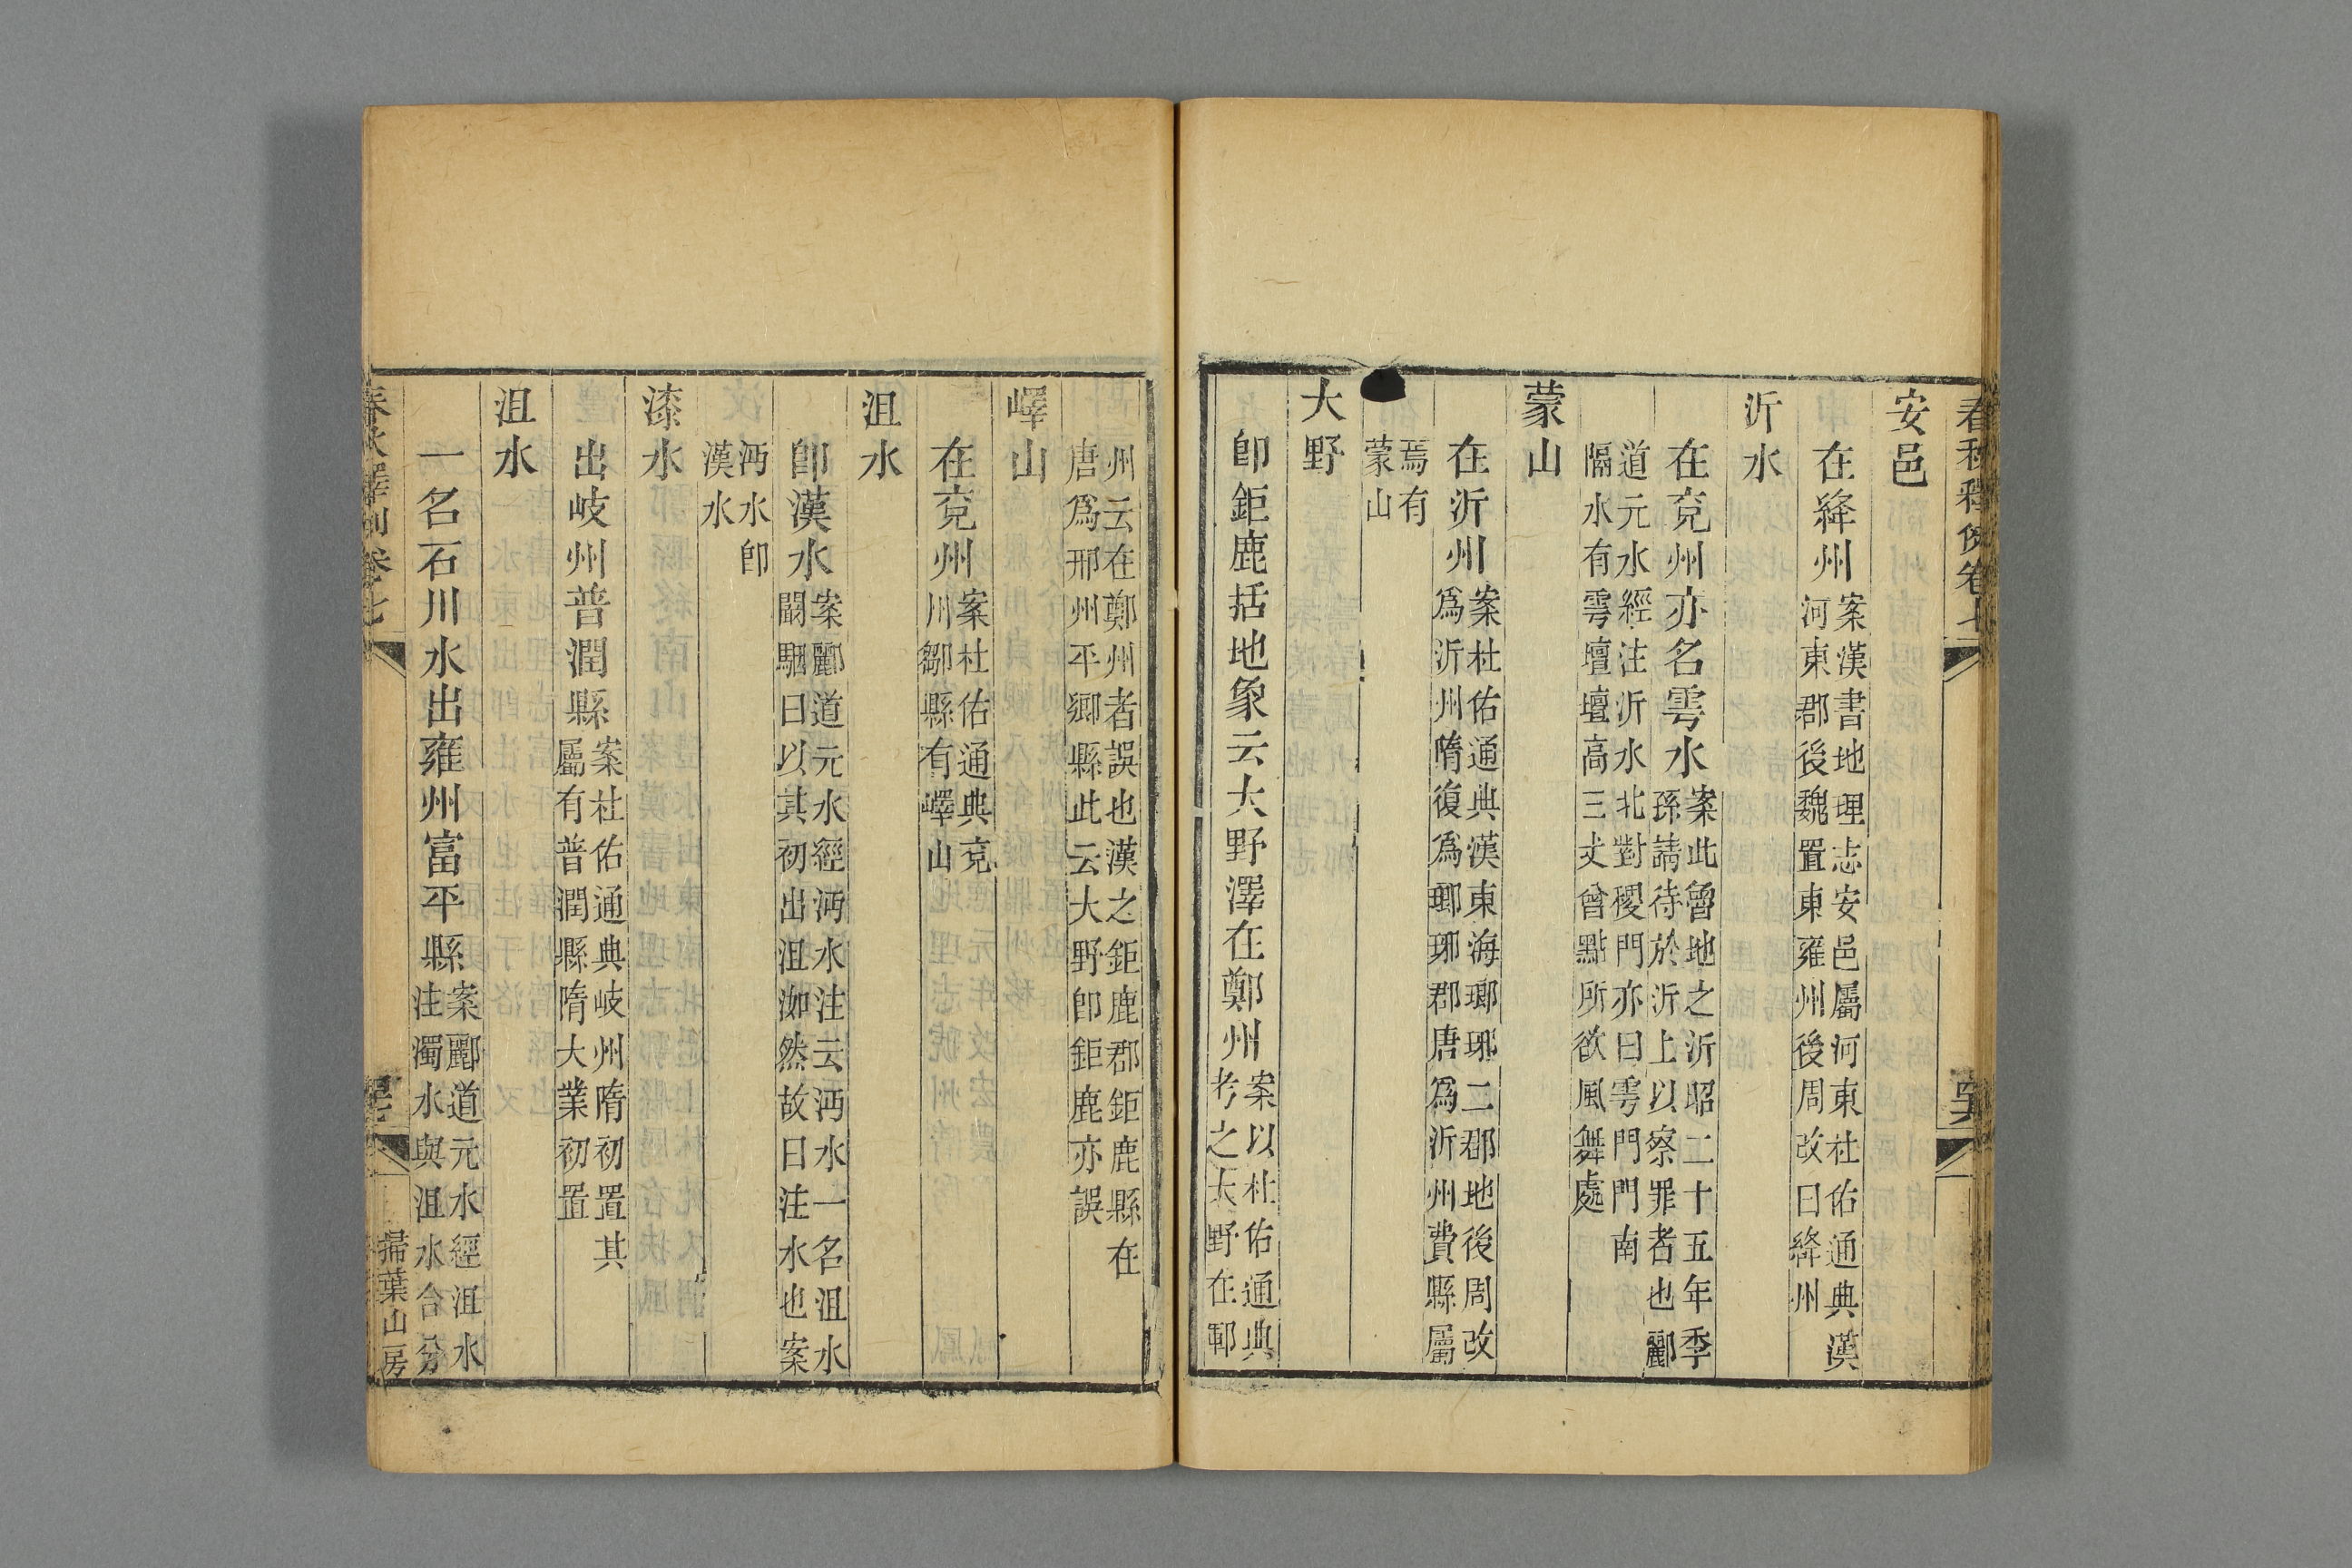 春秋釋例卷七
安邑
在絳州
案漢書地理志安邑屬河東杜佑通典漢
河東郡後魏置東雍州後周改曰絳州
沂水
在兗州亦名雩水
案此魯地之沂昭二十五年季
孫請待於沂上以察罪者也酈
道元水經注沂水北對稷門亦曰雩門門南
隔水有雩壇壇高三丈曾點所欲風舞處
蒙山
在沂州
案杜佑通典漢東海瑯琊二郡地後周改
爲沂州隋復爲瑯琊郡唐爲沂州費縣屬
焉有
蒙山
大野
卽鉅鹿括地象云大野澤在鄭州
案以杜佑通典
考之大野在鄆
州云在鄭州者誤也漢之鉅鹿郡鉅鹿縣在
唐爲邢州平鄉縣此云大野卽鉅鹿亦誤
嶧山
在兗州
案杜佑通典兗
州鄒縣有嶧山
沮水
卽漢水
案酈道元水經沔水注云沔水一名沮水
闞駰曰以其初出沮洳然故曰注水也案
沔水卽
漢水
漆水
出岐州普潤縣
案杜佑通典岐州隋初置其
屬有普潤縣隋大業初置
沮水
一名石川水出雍州富平縣
案酈道元水經沮水
注濁水與沮水合分
春秋釋例卷七
掃葉山房